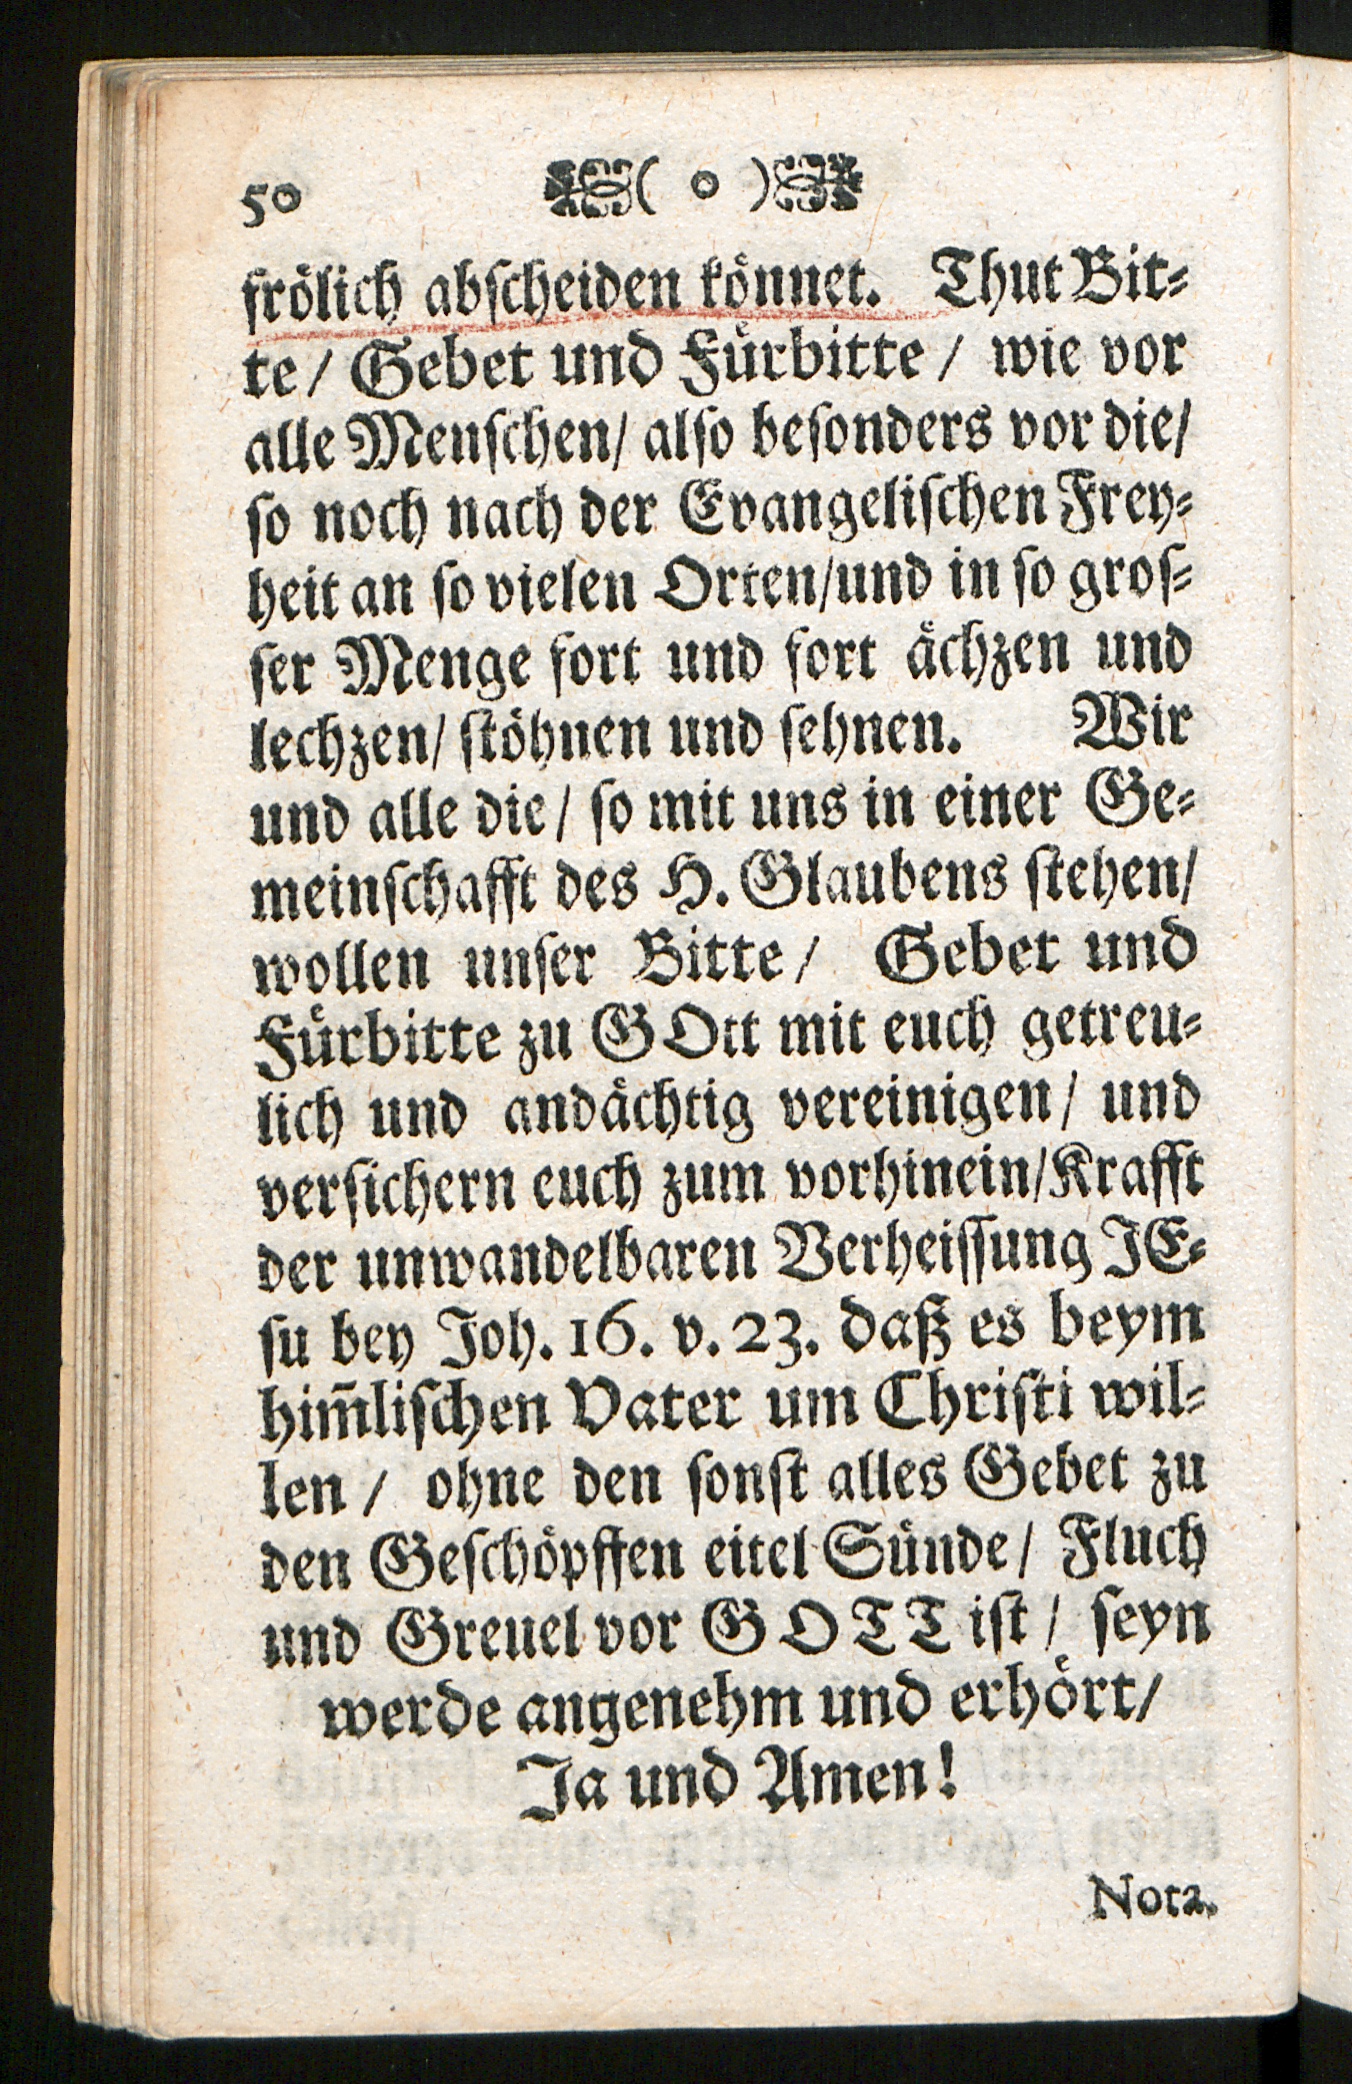 50 ( o )
frölich abscheiden könnet. Thut Bit-
te/ Gebet und Fürbitte/ wie vor
alle Menschen/ also besonders vor die/
so noch nach der Evangelischen Frey-
heit an so vielen Orten/und in so gros-
ser Menge fort und fort ächzen und
lechzen/ stöhnen und sehnen. Wir
und alle die/ so mit uns in einer Ge-
meinschafft des H. Glaubens stehen/
wollen unser Bitte/ Gebet und
Fürbitte zu GOtt mit euch getreu-
lich und andächtig vereinigen/ und
versichern euch zum vorhinein/Krafft
der unwandelbaren Verheissung JE-
su bey Joh. 16. v. 23. daß es beym
him̃lischen Vater um Christi wil-
len/ ohne den sonst alles Gebet zu
den Geschöpffen eitel Sünde/ Fluch
und Greuel vor GOTT ist/ seyn
werde angenehm und erhört/
Ja und Amen!
Nota.